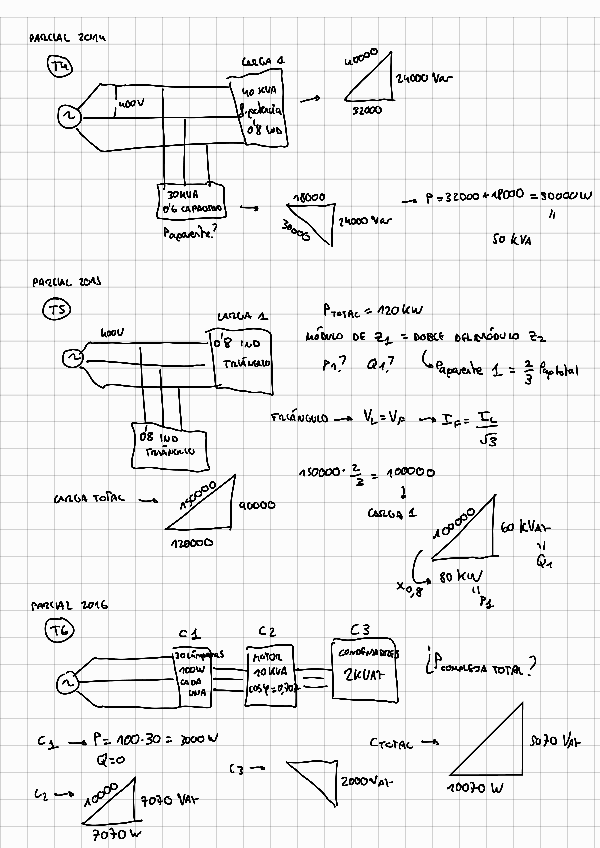 PARCIAL 2014
T4
400V
CARGA 1
40 KVA
f.potencia
0'8 IND
40000
24000 Var
32000
30 KVA
0'6 CAPACITIVO
Paparente?
18000
30000
24000 Var
→ P = 32000 + 18000 = 50000 W
=
50 KVA
PARCIAL 2015
T5
400V
CARGA 1
0'8 IND
TRIÁNGULO
0'8 IND
TRIÁNGULO
PTOTAL = 120 KW
MÓDULO DE Z1 = DOBLE DEL MÓDULO Z2
P1? Q1? Paparente 1 = 2/3 Pap total
TRIÁNGULO → VL = VF → IF = IL/√3
150000 · 2/3 = 100000
↓
CARGA 1
CARGA TOTAL →
150000
90000
120000
100000
60 KVAr
=
Q1
x0,8
80 KW
=
P1
PARCIAL 2016
T6
C1
30 lámparas
100W
CADA
UNA
C2
MOTOR
10 KVA
cos φ = 0,707
C3
CONDENSADORES
2 KVAr
¿PCOMPLEJA TOTAL?
C1 → P = 100·30 = 3000 W
Q = 0
C2 →
10000
7070 VAr
7070 W
C3 →
2000 VAr
CTOTAL →
5070 VAr
10070 W